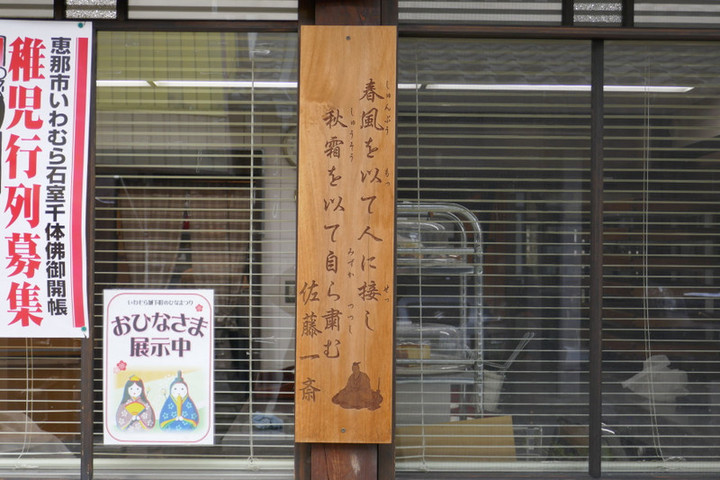 春風を以て人に接し
しゅんぷう
もっ
せっ
秋霜を以て自ら粛む
しゅうそう
みずか
つつし
佐藤一斎
恵那市いわむら石室千体佛御開帳
稚児行列募集
いわむら城下町のひなまつり
おひなさま
展示中